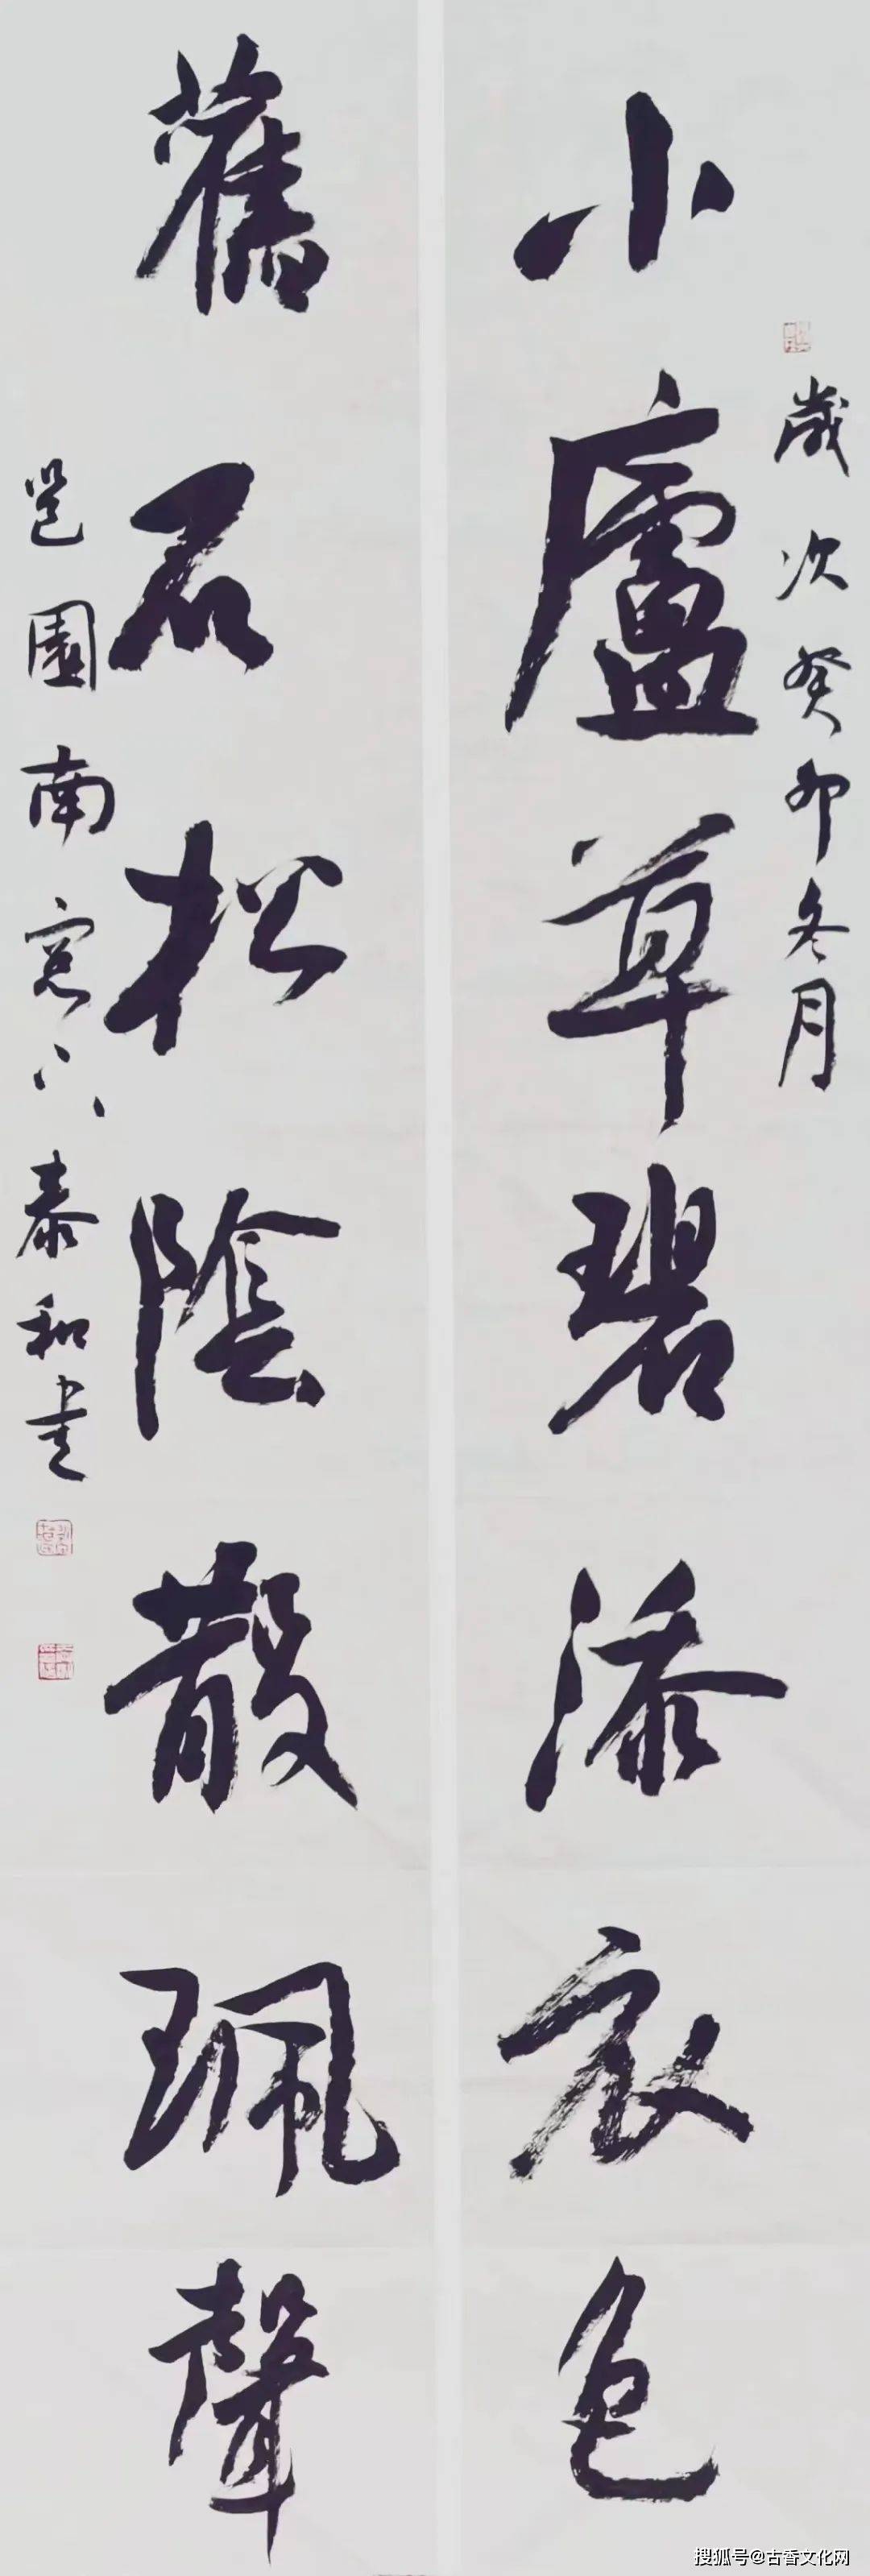 歲次癸卯冬月
小廬草碧添衣色
舊石松陰散珮聲
邕園南窓下泰和書
搜狐号@古香文化网